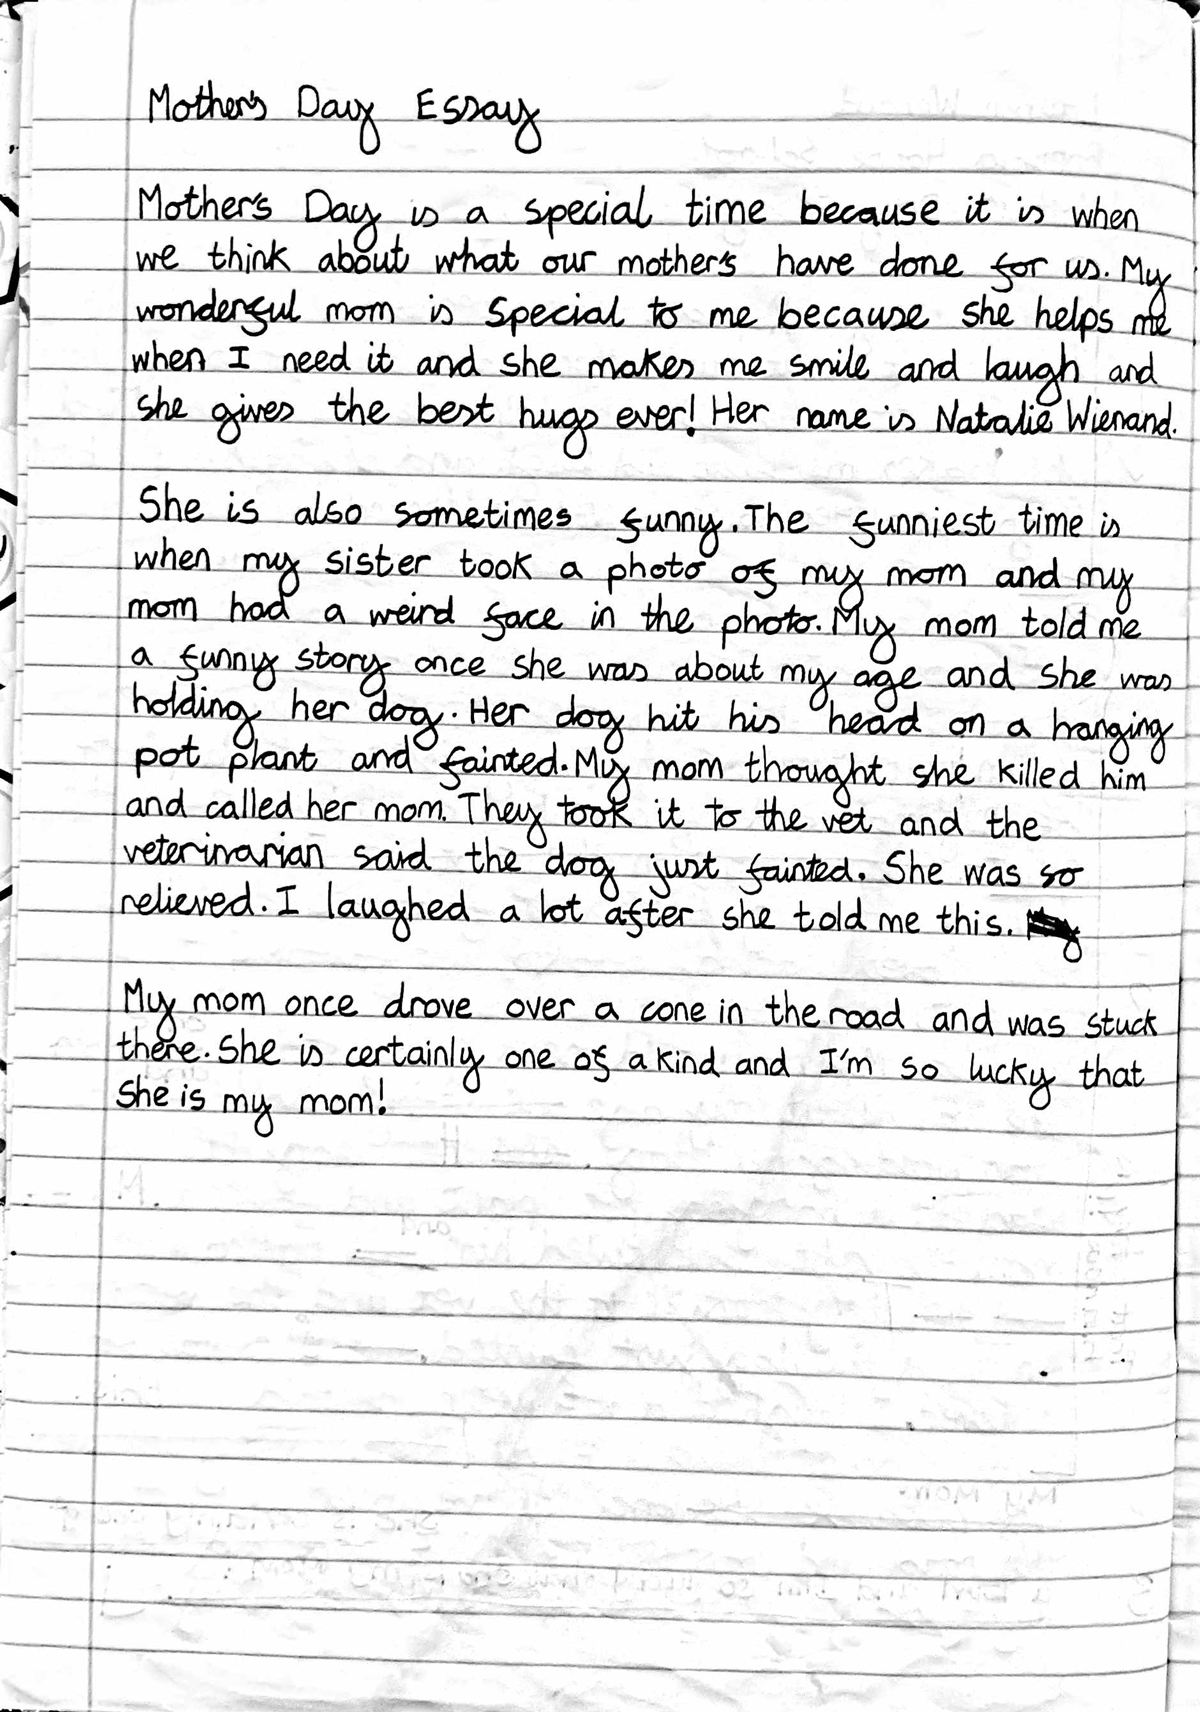 Mother's Day Essay
Mother's Day is a special time because it is when
we think about what our mother's have done for us. My
wonderful mom is special to me because she helps me
when I need it and she makes me smile and laugh and
she gives the best hugs ever! Her name is Natalie Wienand.
She is also sometimes funny. The funniest time is
when my sister took a photo of my mom and my
mom had a weird face in the photo. My mom told me
a funny story once she was about my age and she was
holding her dog. Her dog hit his head on a hanging
pot plant and fainted. My mom thought she killed him
and called her mom. They took it to the vet and the
veterinarian said the dog just fainted. She was so
relieved. I laughed a lot after she told me this.
My mom once drove over a cone in the road and was stuck
there. She is certainly one of a kind and I'm so lucky that
she is my mom!